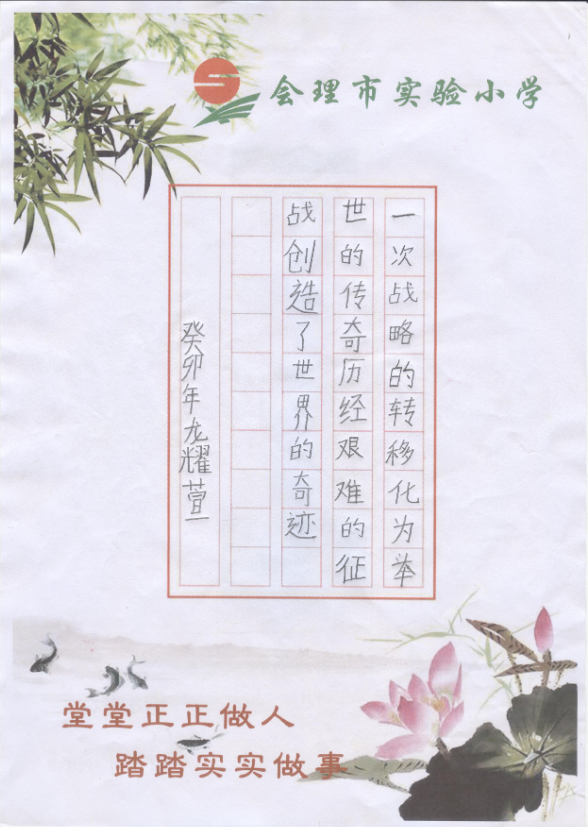 会理市实验小学
一次战略的转移化为举
世的传奇历经艰难的征
战创造了世界的奇迹
癸卯年龙耀萱
堂堂正正做人
踏踏实实做事